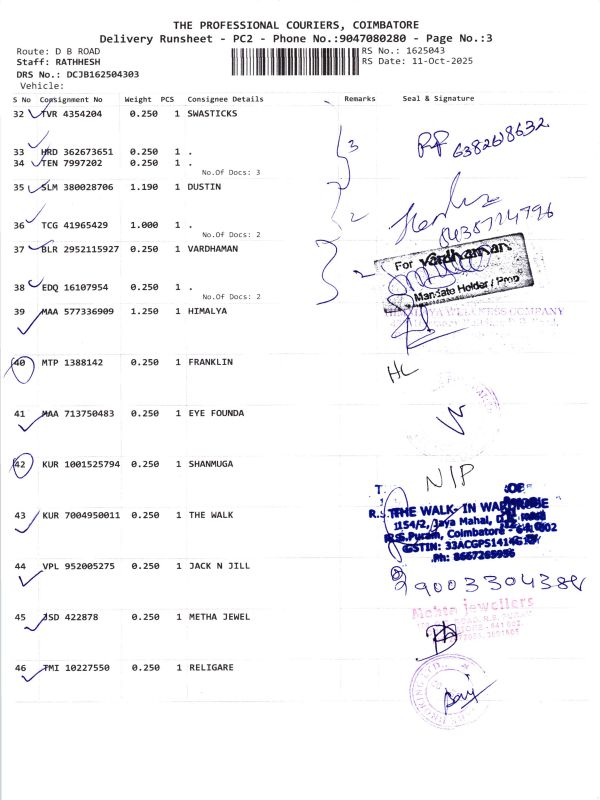 THE PROFESSIONAL COURIERS, COIMBATORE
Delivery Runsheet - PC2 - Phone No.:9047080280 - Page No.:3
Route: D B ROAD
RS No.: 1625043
Staff: RATHHESH
RS Date: 11-Oct-2025
DRS No.: DCJB162504303
Vehicle:
S No Consignment No Weight PCS Consignee Details Remarks Seal & Signature
32 TVR 4354204 0.250 1 SWASTICKS
33 HRD 362673651 0.250 1 . 3
34 TEN 7997202 0.250 1 .
No.Of Docs: 3
35 SLM 380028706 1.190 1 DUSTIN
36 TCG 41965429 1.000 1 . 2
No.Of Docs: 2
8438724796
37 BLR 2952115927 0.250 1 VARDHAMAN
For Vardhaman
2
38 EDQ 16107954 0.250 1 .
Mandate Holder / Prop
No.Of Docs: 2
39 MAA 577336909 1.250 1 HIMALYA
WELLNESS COMPANY
40 MTP 1388142 0.250 1 FRANKLIN HL
41 MAA 713750483 0.250 1 EYE FOUNDA
42 KUR 1001525794 0.250 1 SHANMUGA NIP
43 KUR 7004950011 0.250 1 THE WALK
THE WALK- IN
1154/2, Jaya Mahal,
R.S.Puram, Coimbatore
Ph: 8667265956
44 VPL 952005275 0.250 1 JACK N JILL
45 JSD 422878 0.250 1 METHA JEWEL
Mehta jewellers
46 TMI 10227550 0.250 1 RELIGARE